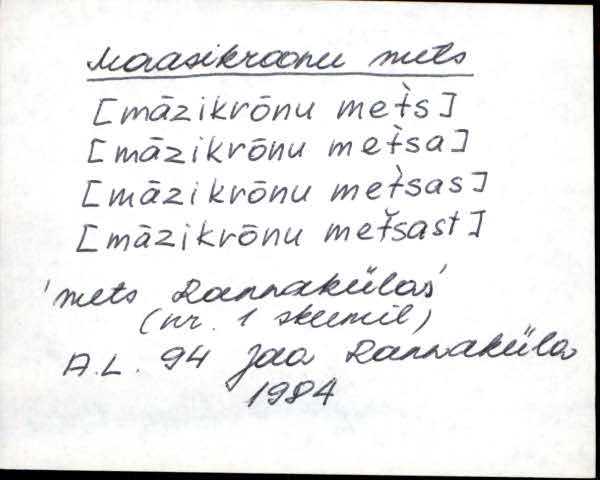 Maasikroonu mets
[māzikrōnu met̀s]
[māzikrōnu met̀sa]
[māzikrōnu met̀sas]
[māzikrōnu met̆sast]
'mets Rannakülas'
(nr. 1 skeemil)
A.L. 94 Jaa Rannaküla
1984